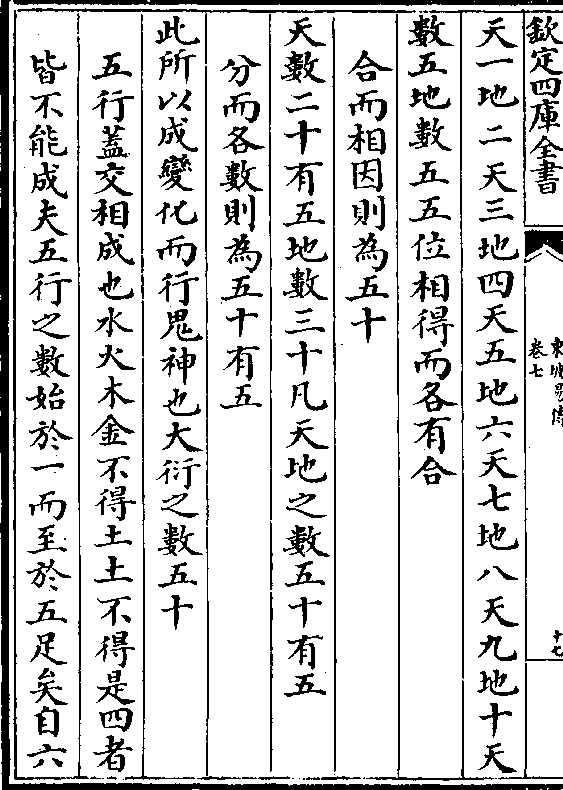 欽定四庫全書
東坡易傳
卷七
十七
天一地二天三地四天五地六天七地八天九地十天
數五地數五五位相得而各有合
合而相因則為五十
天數二十有五地數三十凡天地之數五十有五
分而各數則為五十有五
此所以成變化而行鬼神也大衍之數五十
五行蓋交相成也水火木金不得土土不得是四者
皆不能成夫五行之數始於一而至於五足矣自六